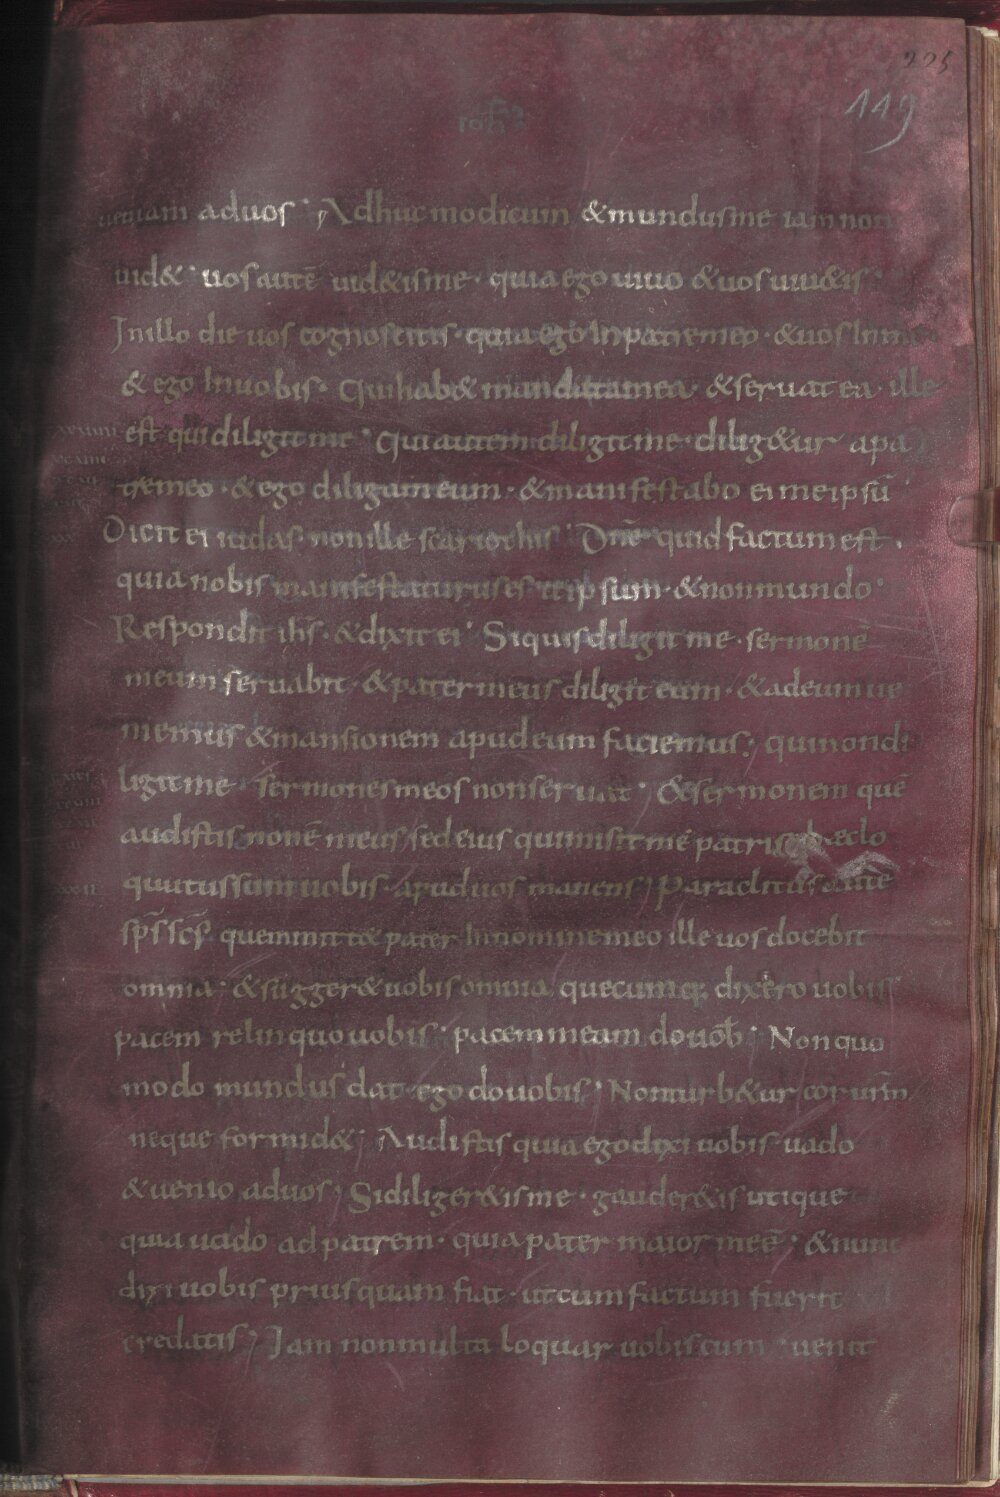 225
119
ioh
ueniam aduos · Adhuc modicum & mundus me iam non
uid& · uos autē uid&is me · quia ego uiuo & uos uiu&is ·
In illo die uos cognoscetis · quia ego In patre meo · & uos In me ·
& ego In uobis · Qui hab& mandata mea · & seruat ea · ille
est qui diligit me · Qui autem diligit me · dilig&ur a pa
tre meo · & ego diligam eum · & manifestabo ei me ipsū
Dicit ei iudas · non ille scariothis · Dn̄e quid factum est ·
quia nobis manifestaturus es te ipsum · & non mundo ·
Respondit ih̄s · & dixit ei · Siquis diligit me · sermonē
meum seruabit · & pater meus diliget eum · & ad eum ue
niemus & mansionem apud eum faciemus ; qui non di
ligit me · sermones meos non seruat · & sermonem quē
audistis non ē meus sed eius qui misit me patris
locutus sum uobis · apud uos manens ; Paraclitus autē
sp̄s sc̄s quem mitt& pater In nomine meo ille uos docebit
omnia · & sugger& uobis omnia quecumq; dixero uobis
pacem relinquo uobis · pacem meam do uob̄ · Non quo
modo mundus dat · ego do uobis · Non turb&ur cor ur̄m
neque formid& ; Audistis quia ego dixi uobis · uado
& uenio aduos ; Si diliger&is me · gauder&is utique
quia uado ad patrem · quia pater maior me ē · & nunc
dixi uobis priusquam fiat · ut cum factum fuerit
credatis ; Iam non multa loquar uobiscum · uenit